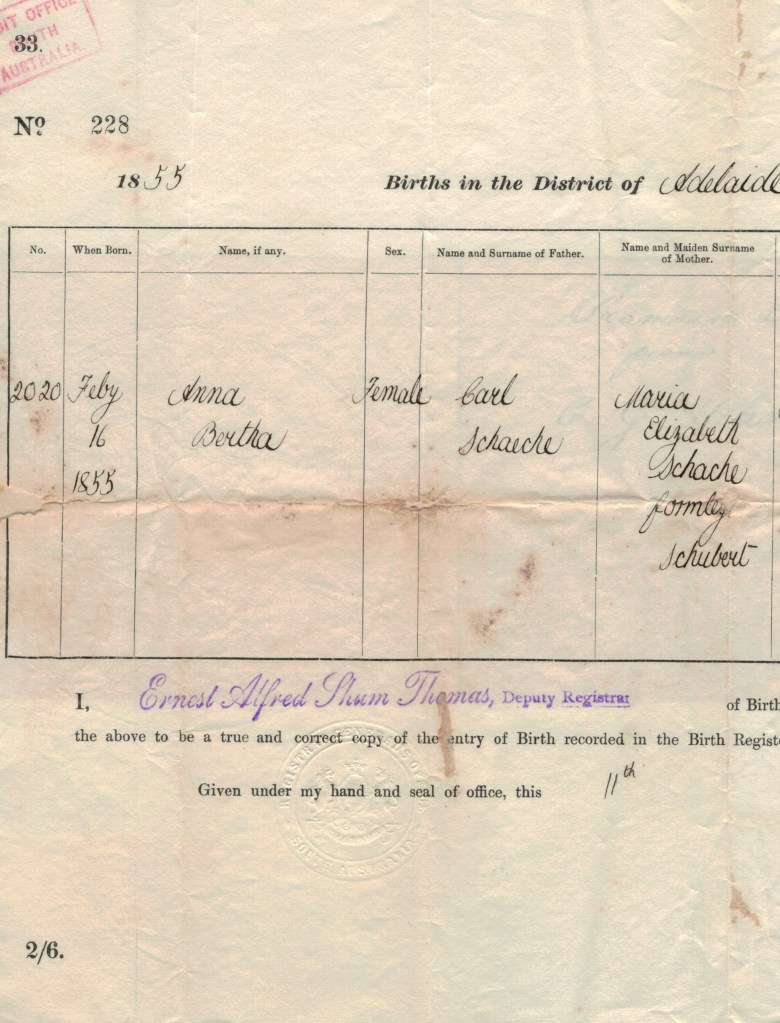 DIT OFFICE
33.
SOUTH
AUSTRALIA
Nº 228
1855 Births in the District of Adelaide
No. When Born. Name, if any. Sex. Name and Surname of Father. Name and Maiden Surname
of Mother.
2020 Feby Anna Female Carl Maria
16 Bertha Schaeche Elizabeth
Schache
1855
formley
Schubert
I, Ernest Alfred Shum Thomas, Deputy Registrar of Birth
the above to be a true and correct copy of the entry of Birth recorded in the Birth Registe
Given under my hand and seal of office, this 11th
SOUTH AUSTRALIA
2/6.